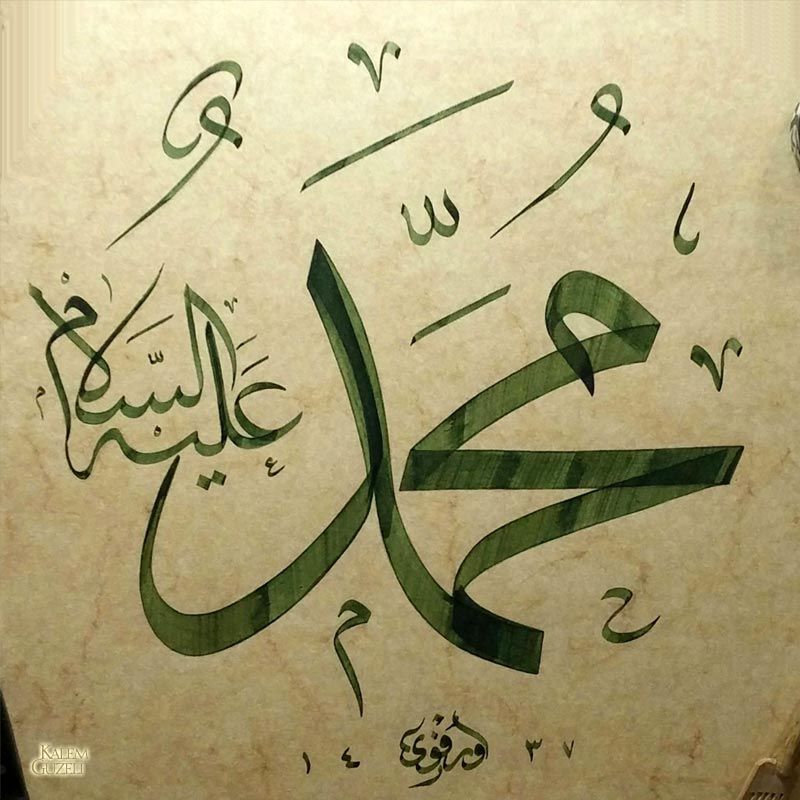 مُحَمَّدٌ
عَلَيْهِ السَّلَامُ
١٤ اورفوى ٣٧
KALEM
GÜZELİ